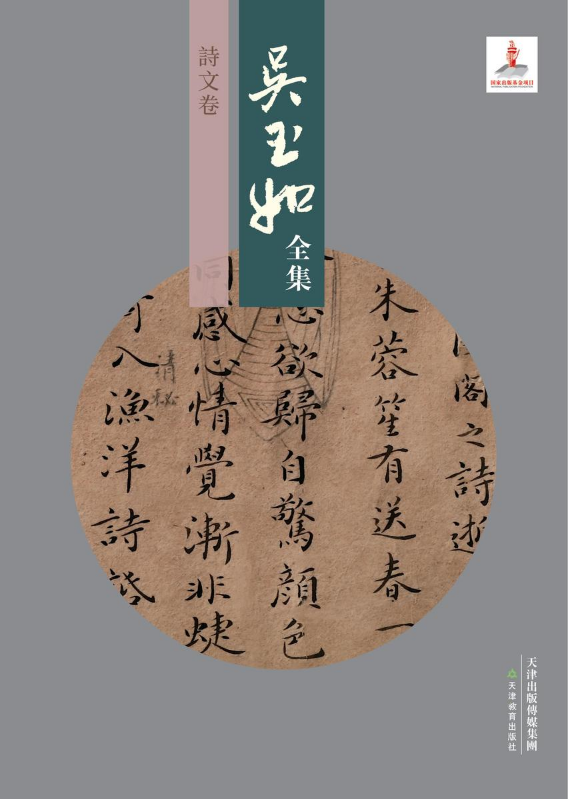 吳玉如
全集
詩文卷
国家出版基金项目
閣之詩逝
朱蓉笙有送春一
欲歸自驚顏色
同感心情覺漸非蜨
入漁洋詩
清秘
天津出版傳媒集團
天津教育出版社